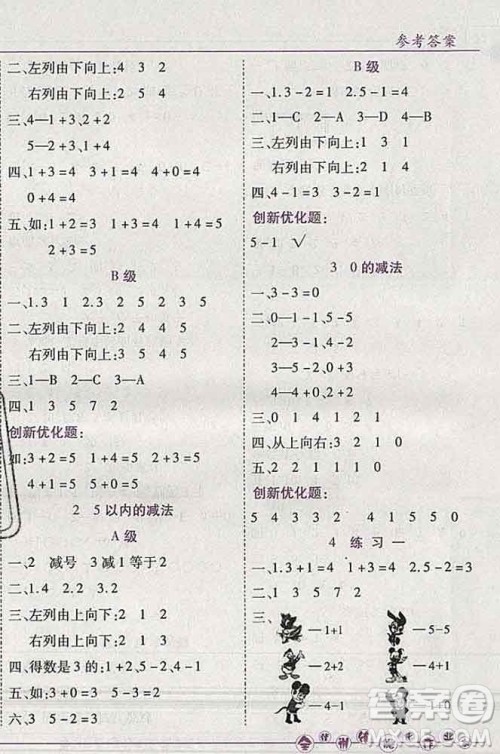 参考答案
二、左列由下向上:4 3 2
右列由下向上:2 5 4
三、4—1+3、2+2
5—2+3、1+4
四、1+3=4 3+1=4 4+0=4
0+4=4
五、如:1+2=3 1+3=4 1+4=5
2+3=5
B级
一、1.3 1 2.3 2 5 2 3 5
二、左列由下向上:2 4 4 5
右列由下向上:3 5 4 5
三、1—B 2—C 3—A
四、1 3 5 7 2
创新优化题:
如:3+2=5 1+4=5 2+3=5
4+1=5
2 5以内的减法
A级
一、2 减号 3减1等于2
二、1.4 2.2 3.2
三、左列由上向下:2 1 2
右列由上向下:2 1 3
四、得数是3的:1+2,5-2,4-1
五、如:3-2=1 5-3=2
六、3 5-2=3
B级
一、1.3-2=1 2.5-1=4
二、1—C 2—A 3—D 4—B
三、左列由下向上:1 3 1
右列由下向上:2 2 1
四、4-1=3 3-2=1
创新优化题:
5-1 √
3 0的减法
一、3-3=0
二、0—1-1,5-5
2—5-3,0+2
3—5-2,0+3
4—4-0,1+3
三、0 1 4 1 2 1
四、从上向右:3 1 0
五、2 0 1 1
创新优化题:
5 4 3 3 2 0 4 1 5 5 0
4 练习一
一、1.3+1=4 2.4-1=3
二、0 1 2 3 4 5
三、
—1+1 —5-5
—2+2 —4-1
—3+2 —1-0